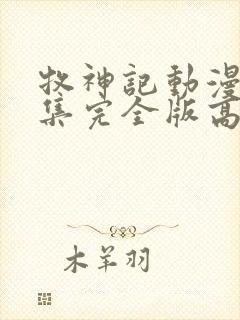 牧神記動漫
集完全版高
木羊羽